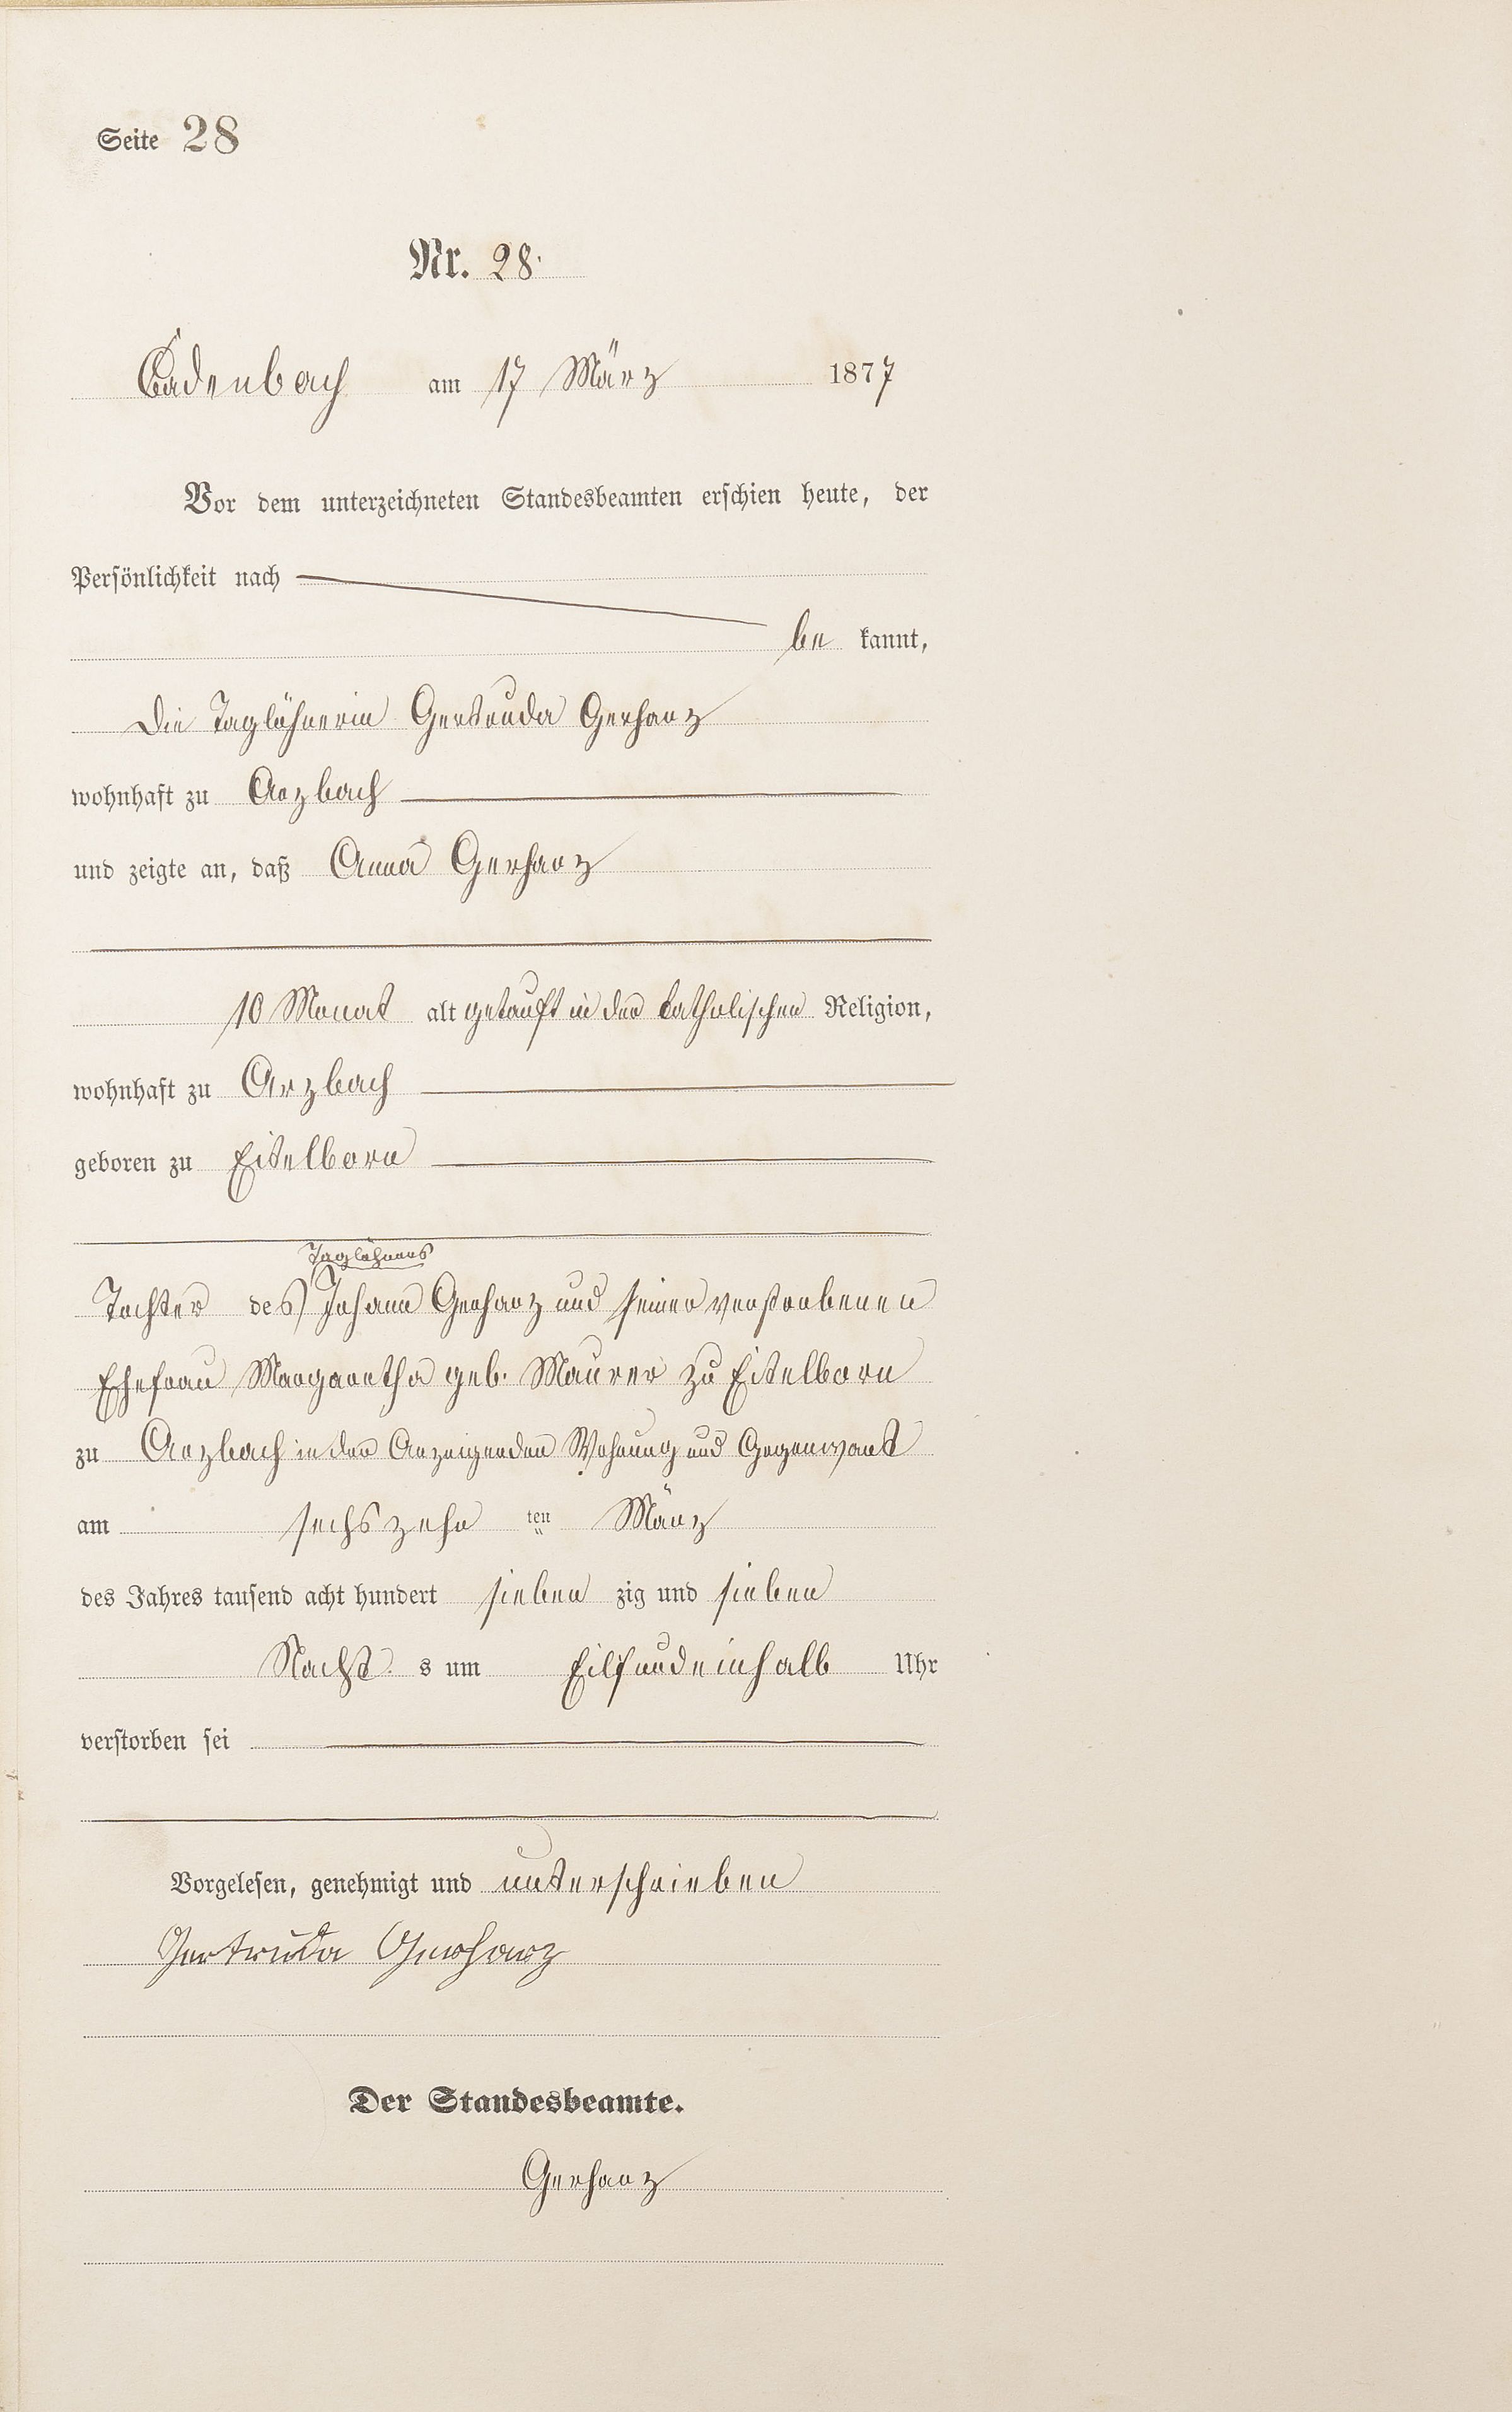 Seite 28
Nr. 28.
Cadenbach am 17 März 1877
Vor dem unterzeichneten Standesbeamten erschien heute, der
Persönlichkeit nach
be kannt,
Die Taglöhnerin Gertruda Gerharz
wohnhaft zu Arzbach
und zeigte an, daß Anna Gerharz
10 Monat alt getauft in der katholischen Religion,
wohnhaft zu Arzbach
geboren zu Eitelborn
Taglöhners
Tochter des Johann Gerharz und seiner verstorbenen
Ehefrau Margaretha geb. Maurer zu Eitelborn
zu Arzbach in der Anzeigenden Wohnung und Gegenwart
am sechszehn ten März
des Jahres tausend acht hundert sieben zig und sieben
Nacht s um Eilfundeinhalb Uhr
verstorben sei
Vorgelesen, genehmigt und unterschrieben
Gertruda Gerharz
Der Standesbeamte.
Gerharz